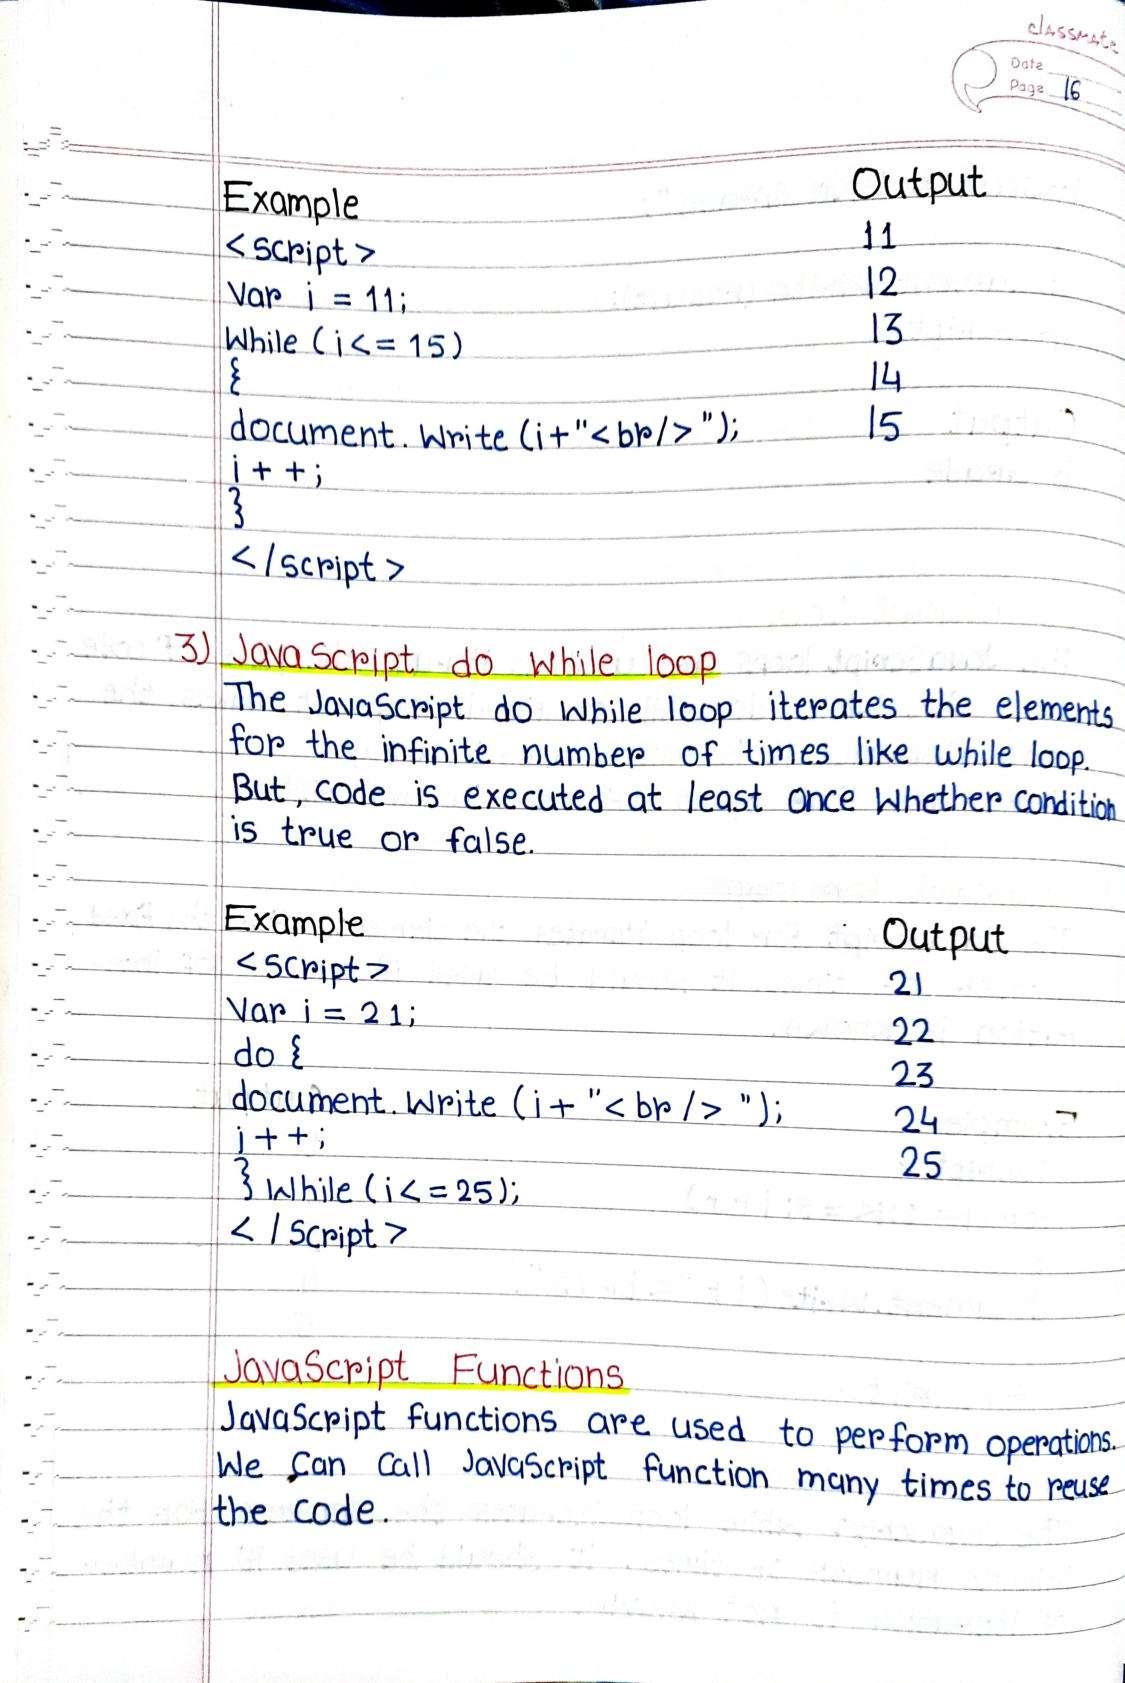 classmate
Date
Page 16
Example
<script>
Var i = 11;
While (i<= 15)
{
document. Write (i+"<br/>");
i + +;
}
</script>
Output
11
12
13
14
15
3) JavaScript do While loop
The JavaScript do While loop iterates the elements
for the infinite number of times like while loop.
But, code is executed at least once Whether condition
is true or false.
Example
<script>
Var i = 21;
do {
document. Write (i+ "<br /> ");
i + +;
} While (i<=25);
< / Script >
Output
21
22
23
24
25
JavaScript Functions
JavaScript functions are used to perform operations.
We can call JavaScript function many times to reuse
the code.